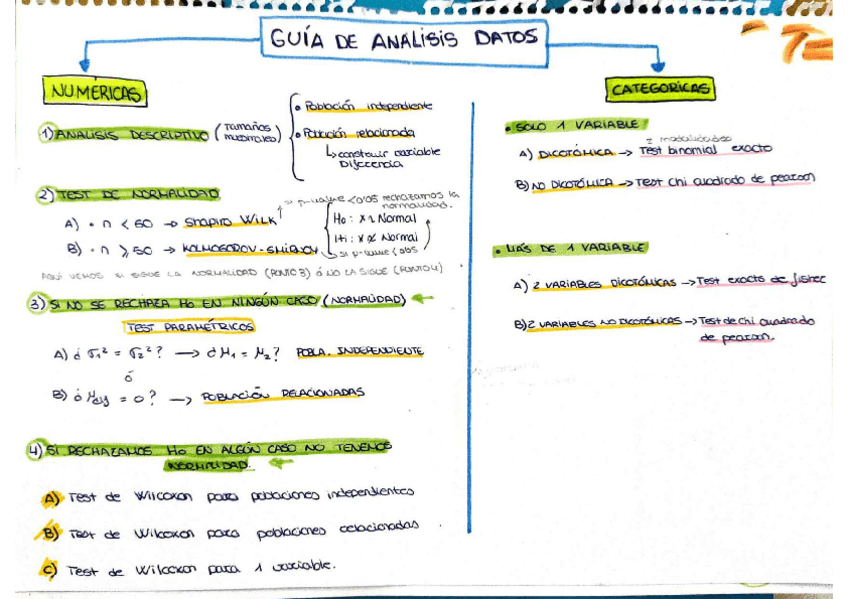 GUÍA DE ANÁLISIS DATOS
NUMÉRICAS
1) ANÁLISIS DESCRIPTIVO (Tamaños muestrales)
• Población independiente
• Población relacionada
↳ construir variable
Diferencia
2) TEST DE NORMALIDAD
A) • n < 50 → SHAPIRO WILK
B) • n ⩾ 50 → KOLMOGOROV-SMIRNOV
p-value < 0'05 rechazamos la
normalidad.
Ho: x ~ Normal
H1: x ≁ Normal
si p-value < 0'05
AQUÍ VEMOS SI SIGUE LA NORMALIDAD (PUNTO 3) Ó NO LA SIGUE (PUNTO 4)
3) SI NO SE RECHAZA Ho EN NINGÚN CASO (NORMALIDAD) ←
TEST PARAMÉTRICOS
A) ¿ σ1² = σ2² ? → ¿ M1 = M2 ? POBLA. INDEPENDIENTE
ó
B) ¿ = 0 ? → POBLACIÓN RELACIONADAS
4) SI RECHAZAMOS Ho EN ALGÚN CASO NO TENEMOS
NORMALIDAD. ←
A) Test de Wilcoxon para poblaciones independientes
B) Test de Wilcoxon para poblaciones relacionadas.
C) Test de Wilcoxon para 1 variable.
CATEGÓRICAS
• SOLO 1 VARIABLE
2 modalidades
A) DICOTÓMICA → Test binomial exacto
B) NO DICOTÓMICA → Test Chi cuadrado de pearson
• MÁS DE 1 VARIABLE
A) 2 VARIABLES DICOTÓMICAS → Test exacto de fisher
B) 2 VARIABLES NO DICOTÓMICAS → Test de chi cuadrado
de pearson.